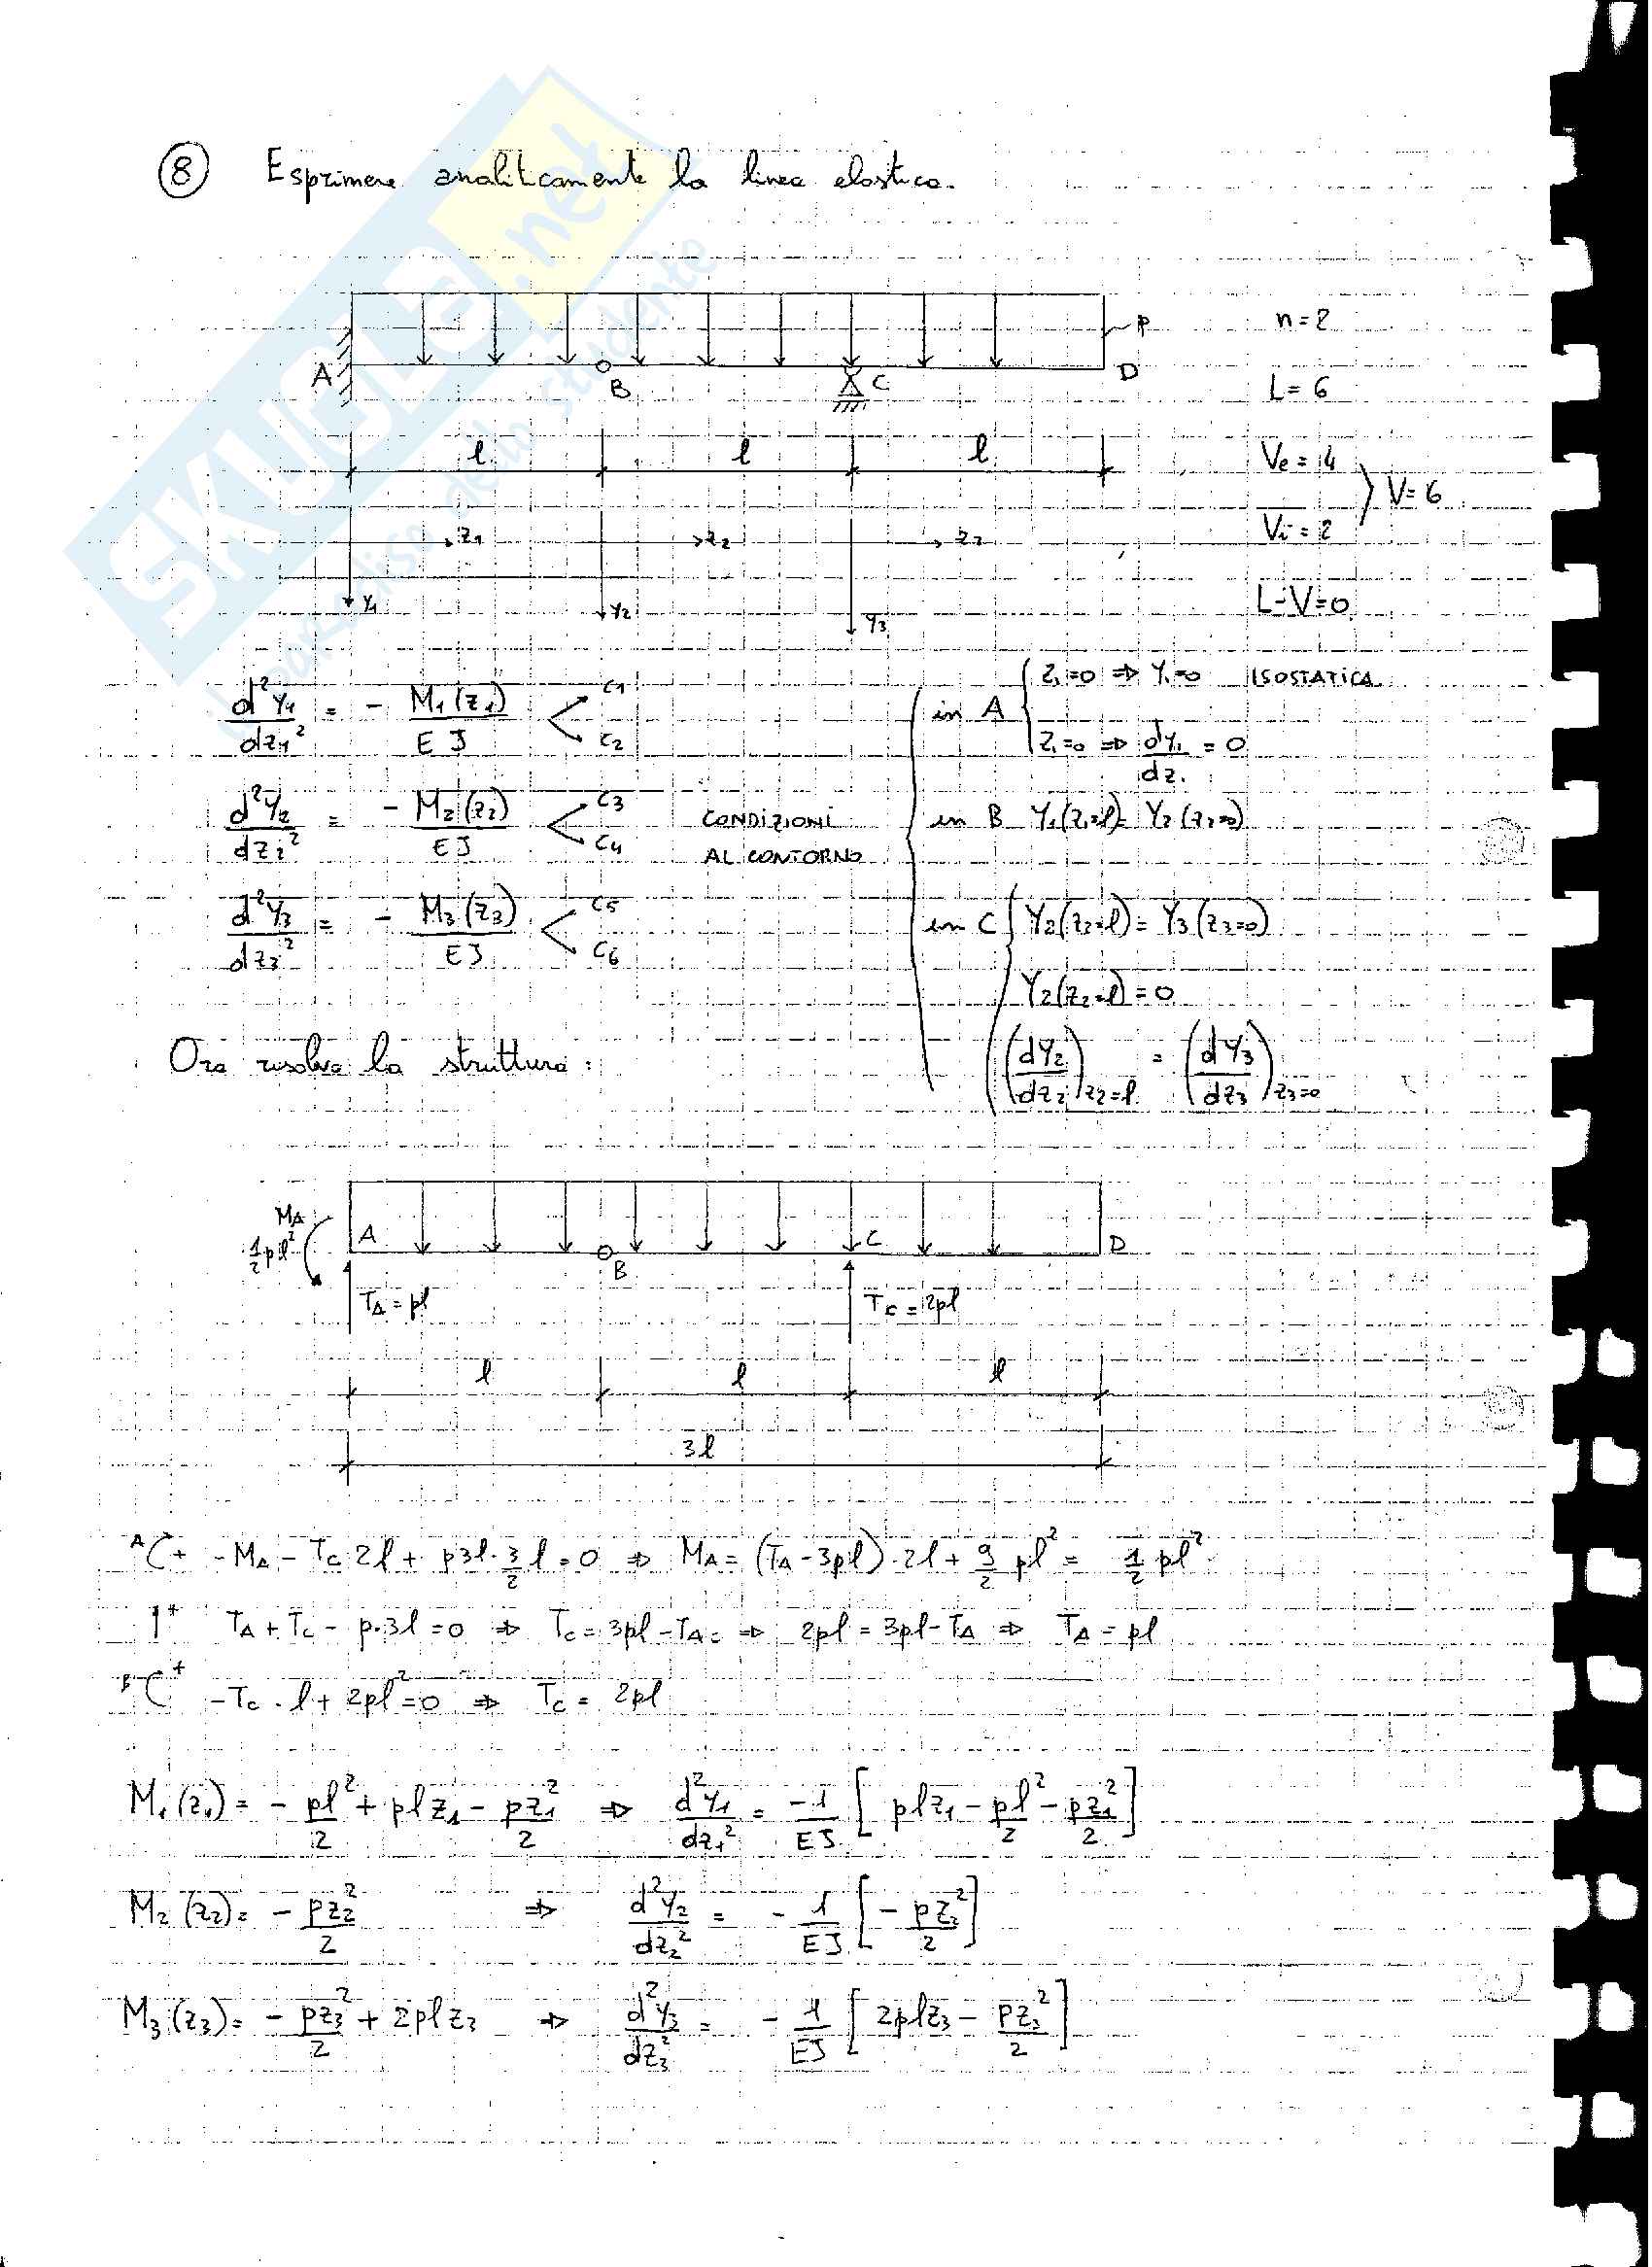 8 Esprimere analiticamente la linea elastica.
A B C D p
l l l
z1 z2 z3
Y1 Y2 Y3
n=2
L=6
Ve=4
Vi=2
V=6
L-V=0
ISOSTATICA
d²Y1/dz1² = - M1(z1)/EJ C1 C2
d²Y2/dz2² = - M2(z2)/EJ C3 C4
d²Y3/dz3² = - M3(z3)/EJ C5 C6
CONDIZIONI
AL CONTORNO
in A z1=0 ⇒ Y1=0
z1=0 ⇒ dY1/dz1 = 0
in B Y1(z1=l)= Y2(z2=0)
in C Y2(z2=l)= Y3(z3=0)
Y2(z2=l)=0
(dY2/dz2)z2=l = (dY3/dz3)z3=0
Ora risolvo la struttura:
MA
1/2 pl²
A B C D
TA=pl TC=2pl
l l l
3l
A + -MA - TC 2l + p3l·3/2 l = 0 ⇒ MA = (TA-3pl)·2l + 9/2 pl² = 1/2 pl²
+ TA + TC - p·3l = 0 ⇒ TC = 3pl-TA = ⇒ 2pl = 3pl-TA ⇒ TA = pl
B + -TC·l + 2pl² = 0 ⇒ TC = 2pl
M1(z1) = - pl²/2 + plz1 - pz1²/2 ⇒ d²Y1/dz1² = -1/EJ [plz1 - pl²/2 - pz1²/2]
M2(z2) = - pz2²/2 ⇒ d²Y2/dz2² = - 1/EJ [- pz2²/2]
M3(z3) = - pz3²/2 + 2plz3 ⇒ d²Y3/dz3² = - 1/EJ [2plz3 - pz3²/2]
SKUOLA.net